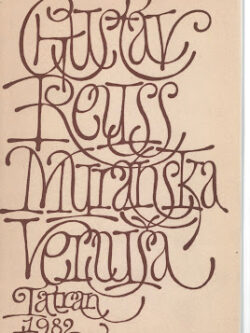 Gustáv
Reuss
Muránska
Venuša
Tatran
1982